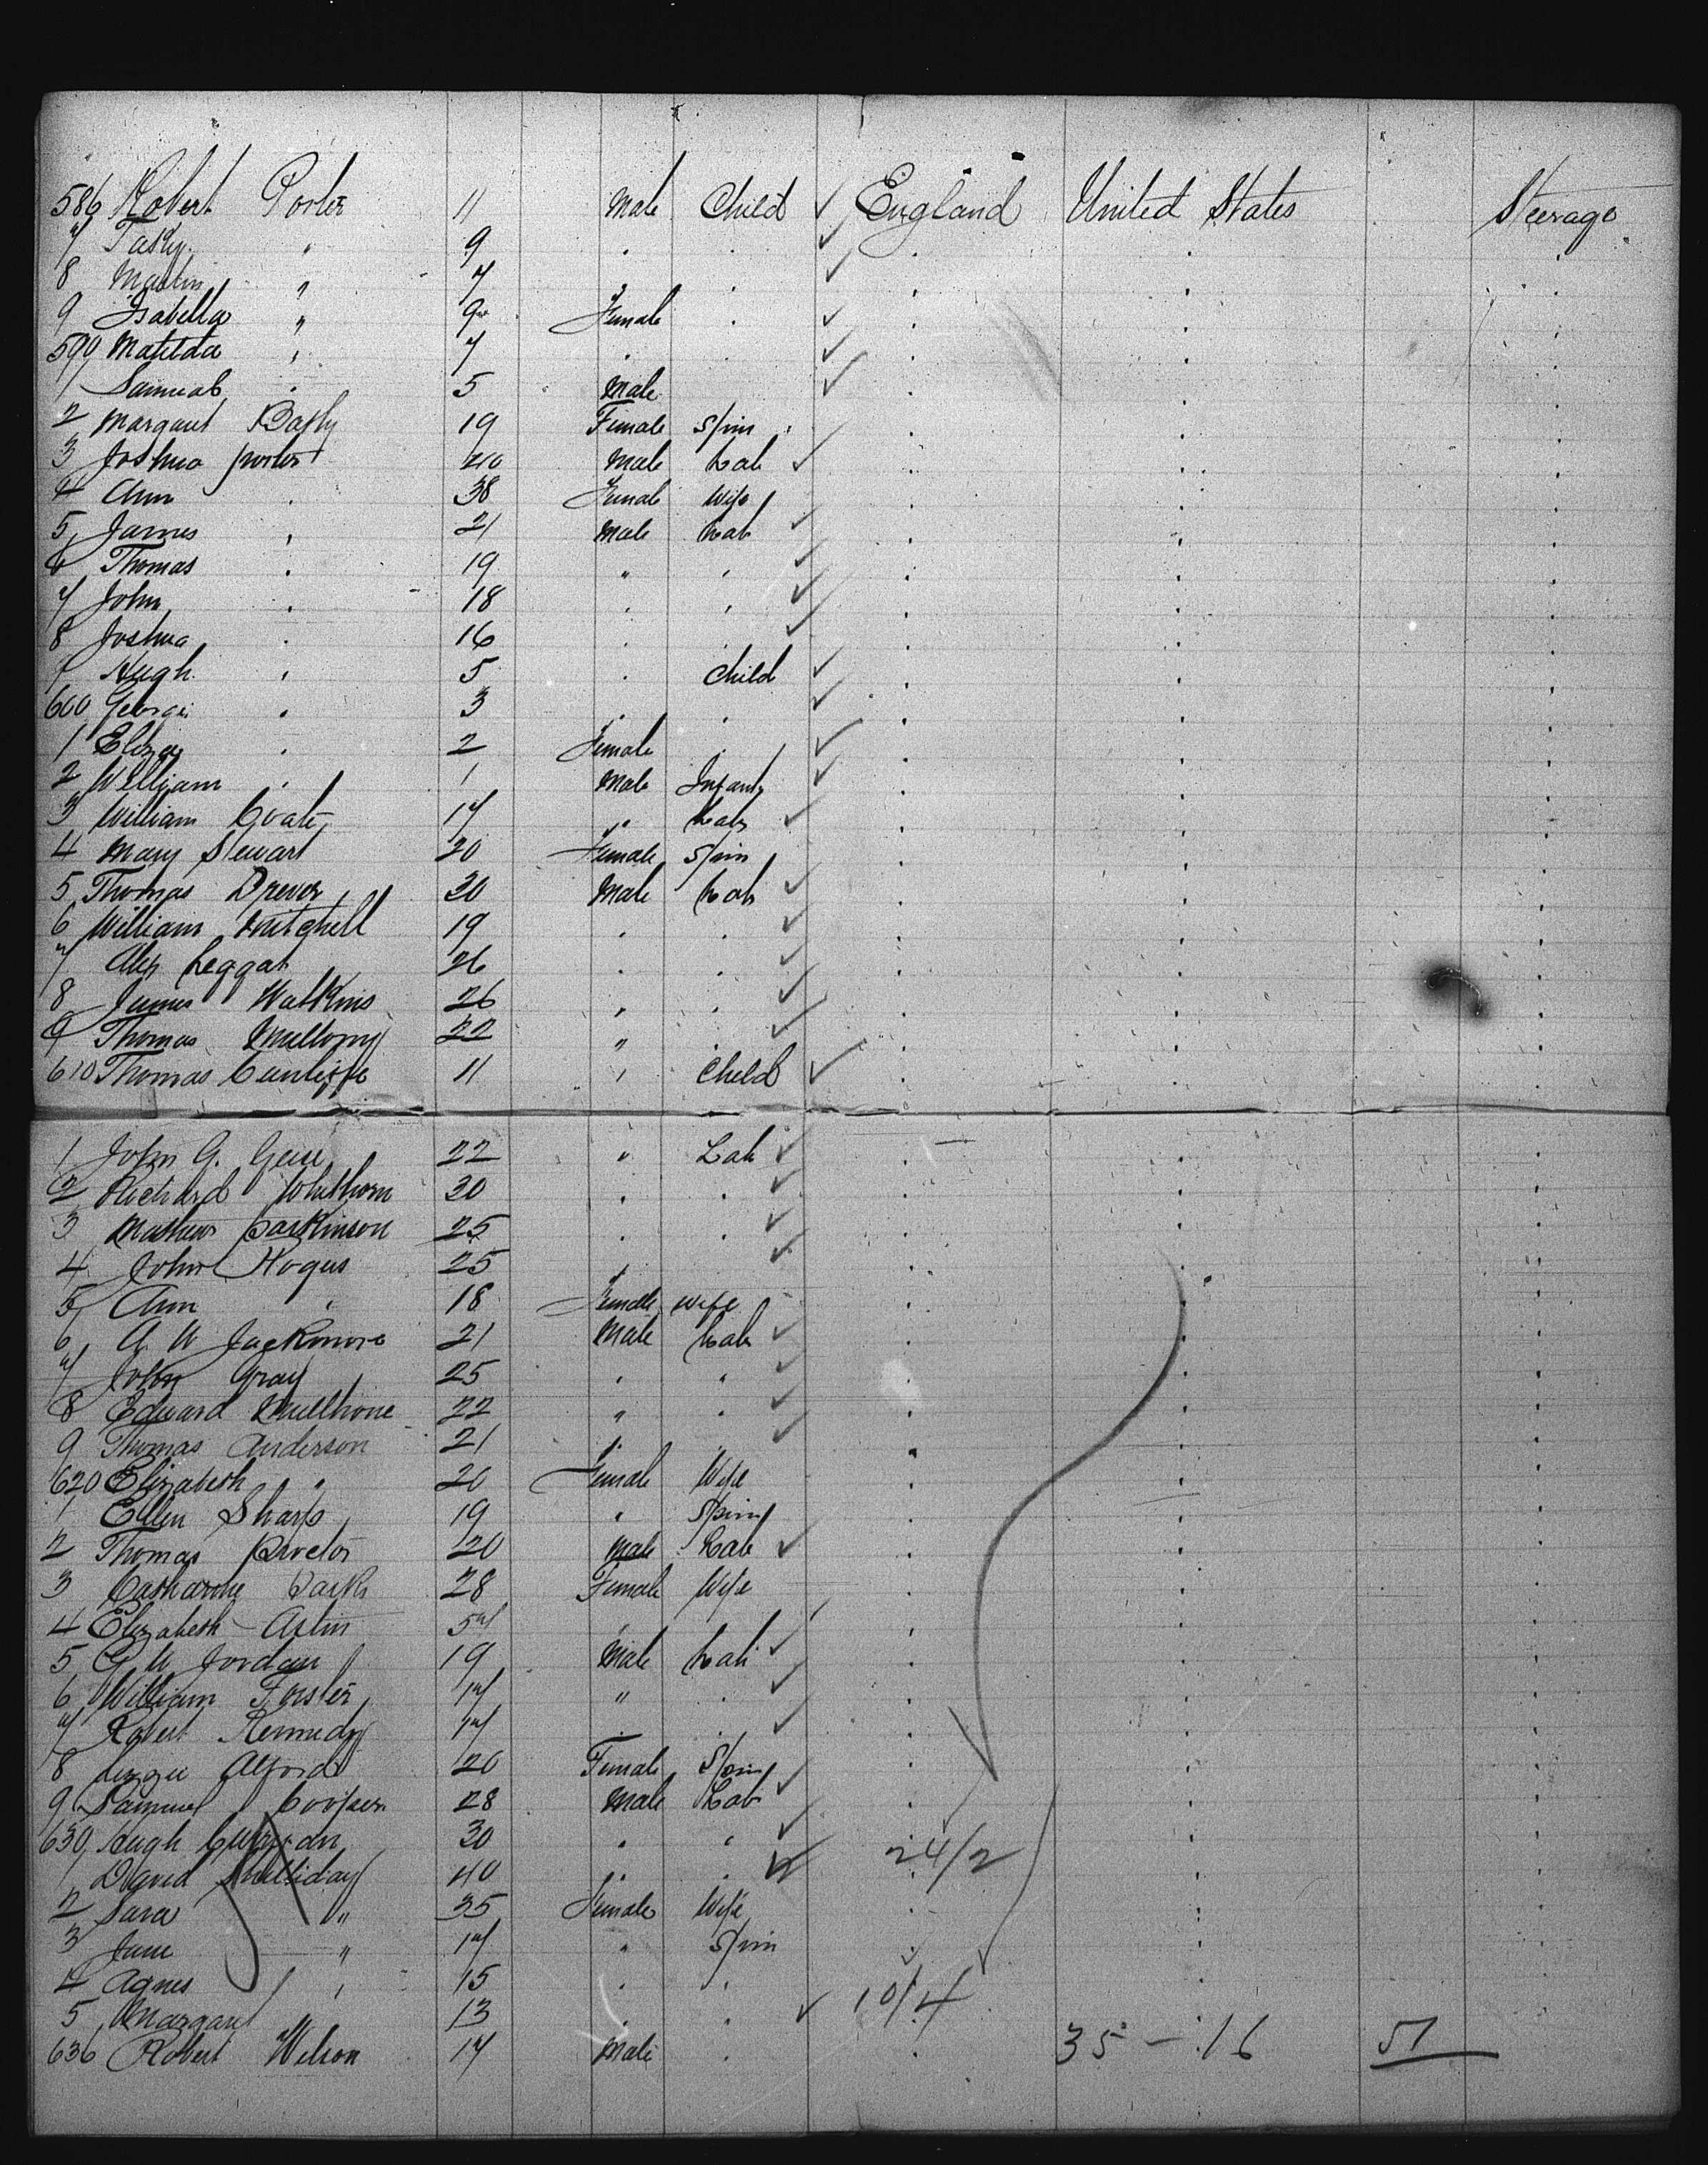 586 Robert Porter 11 Male Child ✓ England United States Steerage
7 " 9 . . ✓ . . .
8 Martin " 7 " . ✓ . . .
9 Isabella " 9 Female . ✓ . . .
590 Matilda " 7 . . ✓ . . .
1 Samuel . 5 Male ✓ . . .
2 Margaret 19 Female Spin . ✓ . . .
3 Joshua Porter 40 Male Lab ✓ . . .
4 Ann . 38 Female Wife . . .
5 James . 21 Male Lab ✓ . . .
6 Thomas . 19 " . ✓ . . .
7 John . 18 . . ✓ . . .
8 Joshua . 16 . . ✓ . . .
9 Hugh . 5 . Child ✓ . . .
600 George . 3 . . ✓ . . .
1 Eliza . 2 Female . ✓ . . .
2 William . 1 Male Infant ✓ . . .
3 William Coate 17 " Lab ✓ . . .
4 Mary Stewart 20 Female Spin . . .
5 Thomas Drever 20 Male Lab ✓ . . .
6 William Mitchell 19 . . ✓ . . .
7 Alex Leggat 26 . . ✓ . . .
8 James Watkins 26 " . ✓ . . .
9 Thomas 22 " . ✓ . . .
610 Thomas Cunliffe 11 " Child ✓ . . .
1 John G. 22 " Lab ✓ . . .
2 Richard Whithorn 30 . . ✓ . . .
3 Mathew Parkinson 25 . . ✓ . . .
4 John Hogus 25 . . ✓ . . .
5 Ann " 18 Female Wife . . .
6 A. W Jackmore 21 Male Lab ✓ . . .
7 John Gray 25 . " ✓ . . .
8 Edward Mullhone 22 " . ✓ . . .
9 Thomas Anderson 21 " . ✓ . . .
620 Elizabeth " 20 Female Wife . . .
1 Ellen Sharp 19 . Spin . . .
2 Thomas Proctor 20 Male Lab ✓ . . .
3 Catharine Parks 28 Female Wife . . .
4 Elizabeth Astin 57 " . . .
5 G W Jordan 19 Male Lab ✓ . . .
6 William Foster 17 " . ✓ . . .
7 Robert Kennedy 17 . . ✓ . . .
8 Lizzie Alford 20 Female Spin . . .
9 Samuel Cooper 28 Male Lab ✓ . . .
630 Hugh 30 . " ✓ 24/2 . .
1 David Shelliday 40 " . ✓ . . .
2 Sara " 35 Female Wife . . .
3 Jane " 17 " Spin . . .
4 Agnes " 15 . . . . .
5 Margaret 13 . . ✓ 10/4 . .
636 Robert Wilson 17 Male . . 35 - 16 51